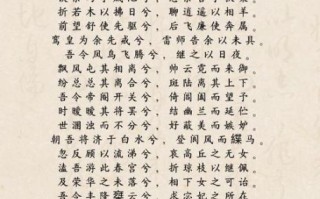 折若木以拂日兮，聊逍遥以相羊。
前望舒使先驱兮，后飞廉使奔属。
鸾皇为余先戒兮，雷师告余以未具。
吾令凤鸟飞腾兮，继之以日夜。
飘风屯其相离兮，帅云霓而来御。
纷总总其离合兮，斑陆离其上下。
吾令帝阍开关兮，倚阊阖而望予。
时暧暧其将罢兮，结幽兰而延伫。
世溷浊而不分兮，好蔽美而嫉妒。
朝吾将济于白水兮，登阆风而緤马。
忽反顾以流涕兮，哀高丘之无女。
溘吾游此春宫兮，折琼枝以继佩。
及荣华之未落兮，相下女之可诒。